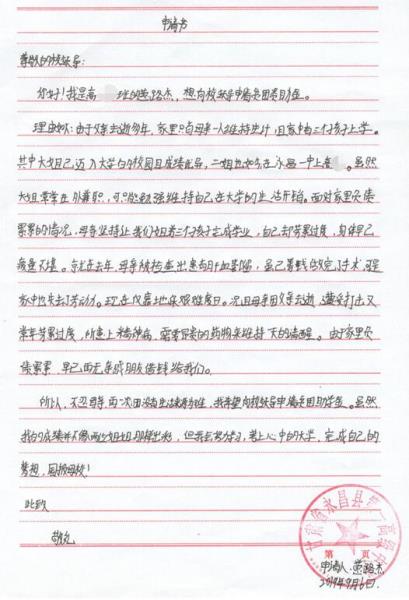 申请书
尊敬的校领导:
您好!我是高 班的 路杰,想向校领导申请 助学金。
理由如下:由于父亲去逝多年,家里只有母亲一人维持生计且家中有三个孩子上学。
其中大姐已迈入大学的校园且成绩优异,二姐也如今在永昌一中上高 。虽然
大姐常常在外兼职,可只能勉强维持自己在大学的生活开销。面对家里负债
累累的情况,母亲坚持让我们姐弟三个孩子完成学业,自己却劳累过度,身体早已
疲惫不堪。就在去年,母亲被检查出患有 ,虽已筹钱做完了手术,可是
家中也失去了劳动力。现在仅靠地 艰难度日。况且母亲因父亲去逝,遭受打击又
常年劳累过度,所患上精神病,需要昂贵的药物来维持 的清醒。由于家里负
债累累,早已再无亲戚朋友借钱给我们。
所以,不忍母亲再一次因没有生活来源 ,我希望向校领导申请 助学金。虽然
我的成绩并不像两位姐姐那样出彩,但我会努力学习,考上心中的大学,完成自己的
梦想,回报母校!
此致
敬礼
甘肃省永昌县第 高级
第 页
申请人: 路杰
9月6日.